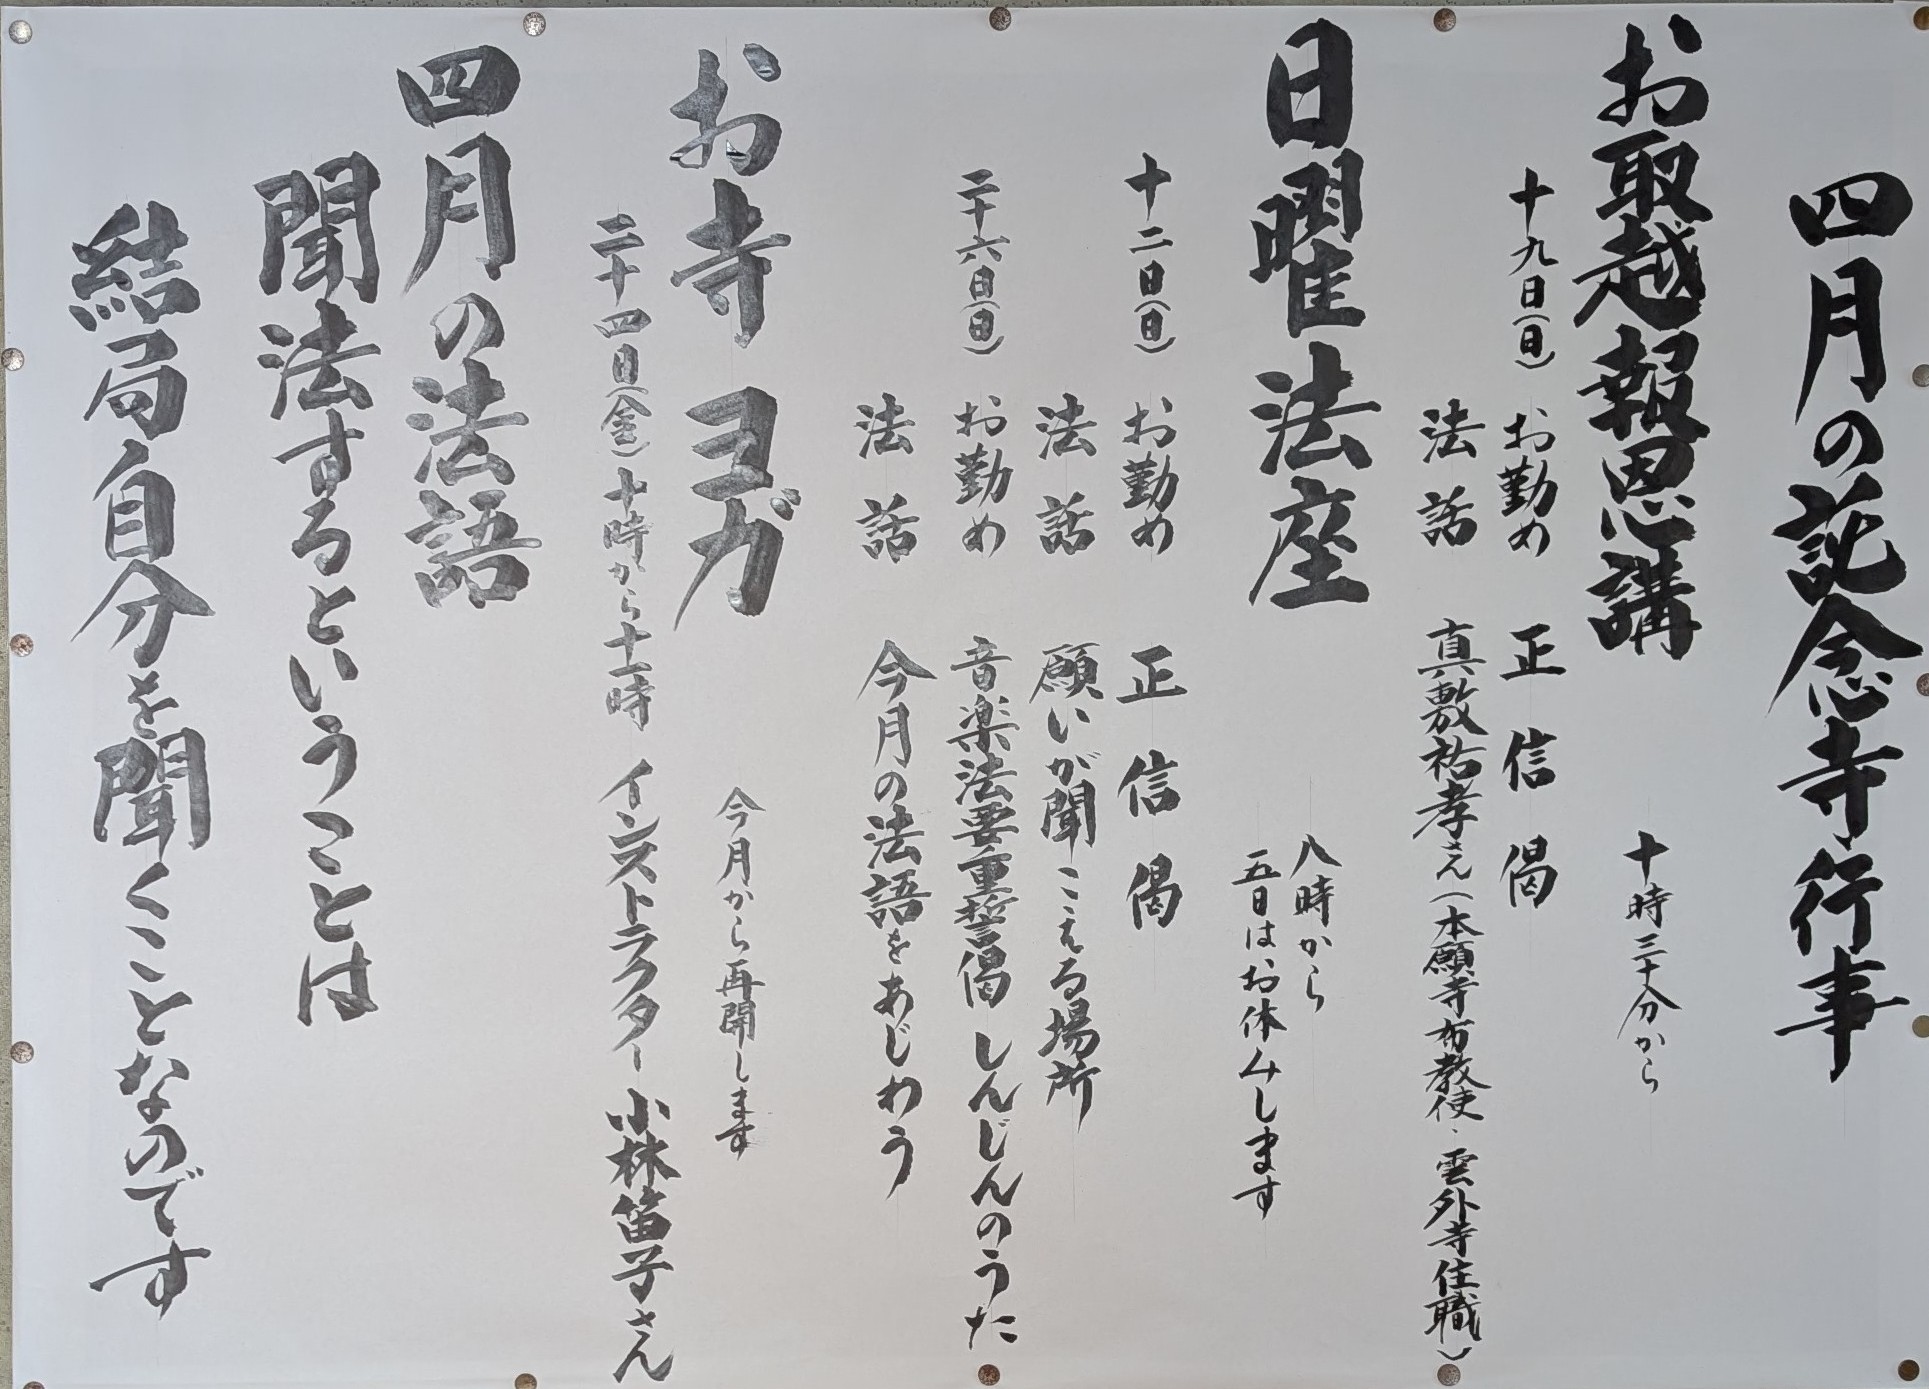 四月の託念寺行事
お取越報恩講
十時三十分から
十九日(日) お勤め 正信偈
法話 真敷祐孝さん(本願寺布教使・雲外寺住職)
日曜法座
八時から
五日はお休みします
十二日(日) お勤め 正信偈
法話 願いが聞こえる場所
二十六日(日) お勤め 音楽法要重誓偈 しんじんのうた
法話 今月の法語をあじわう
お寺ヨガ
今月から再開します
二十四日(金)十時から十一時 インストラクター 小林笛子さん
四月の法語
聞法するということは
結局自分を聞くことなのです